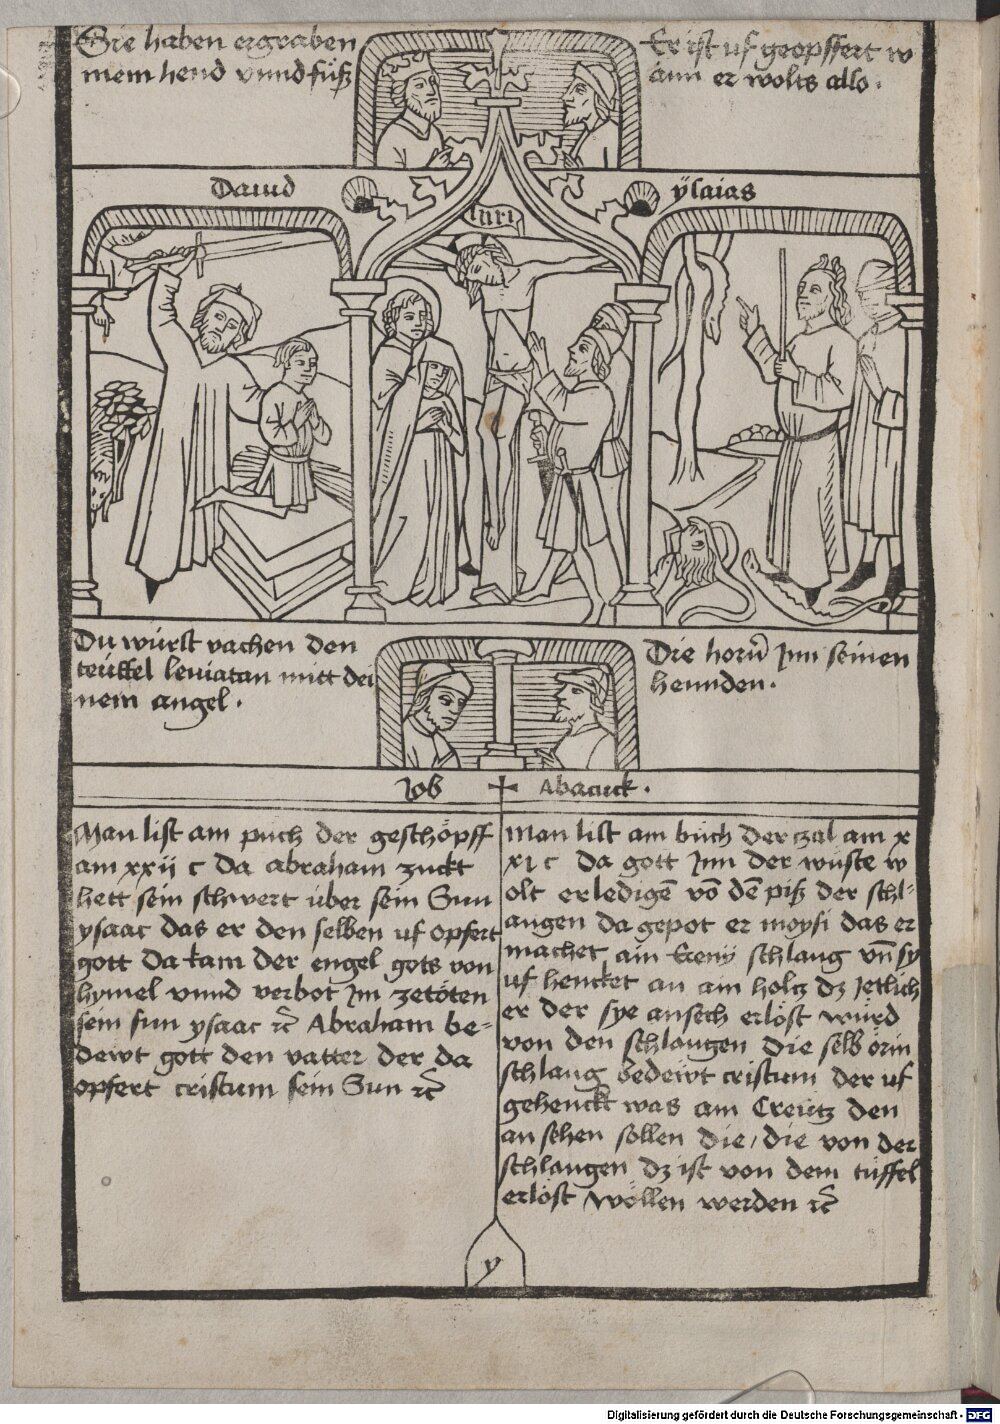 Sie haben ergraben
mein hend vnnd füß
Er ist uf geopffert w
ann er wolts allo.
Dauid
ÿsaias
inri
Du würst vachen den
teüffel leuiatan mitt dei
nem angel.
Die horn̄ Jnn seinen
hennden.
Job
Abacuck.
Man list am puch der geschöpff
am xxij c da abraham zuckt
hett sein schwert über sein Sun
ysaac das er den selben uf opfert
gott da kam der engel gots von
hymel vnnd verbot Jm zetöten
sein sun ysaac ꝛc̄ Abraham be-
dewt gott den vatter der da
opfert cristum sein Sun ꝛc̄
Man list am büch der zal am x
xı c da gott Jnn der wüste w
olt erledigē vō dē piß der schl-
angen da gepot er moysi das er
machet ain Ereny schlang vn̄ sy
uf hencket an am holtz dz Jetlich
er der sye ansech erlöst würd
von den schlangen die selb örin
schlang bedewt cristum der uf
gehenckt was am Creütz den
an sehen söllen die/die von der
schlangen dz ist von dem tüffel
erlöst wöllen werden ꝛc̄
y
Digitalisierung gefördert durch die Deutsche Forschungsgemeinschaft - DFG